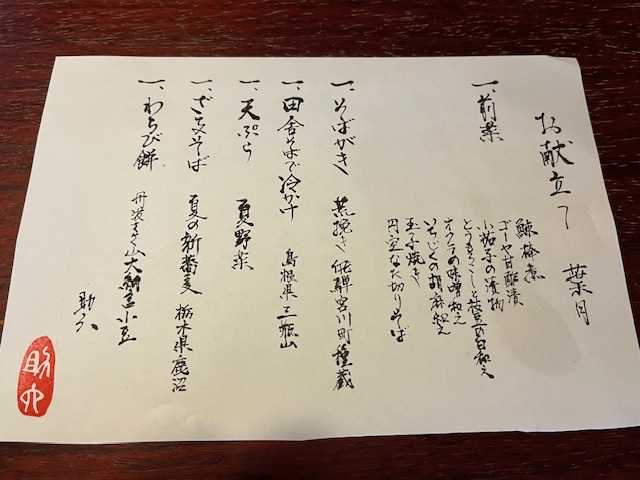 お献立て 葉月
一、前菜
鯡棒煮
ゴーヤ甘酢漬
小茄子の漬物
とうもろこしと枝豆の白和え
オクラの味噌和え
いちじくの胡麻和え
玉子焼き
円空なた切りそば
一、そばがき 荒挽き 飛騨宮川町種蔵
一、田舎そばで冷かけ 島根県三瓶山
一、天ぷら 夏野菜
一、ざるそば 夏の新蕎麦 栃木県鹿沼
一、わらび餅 丹波 大納言小豆
助六
助六